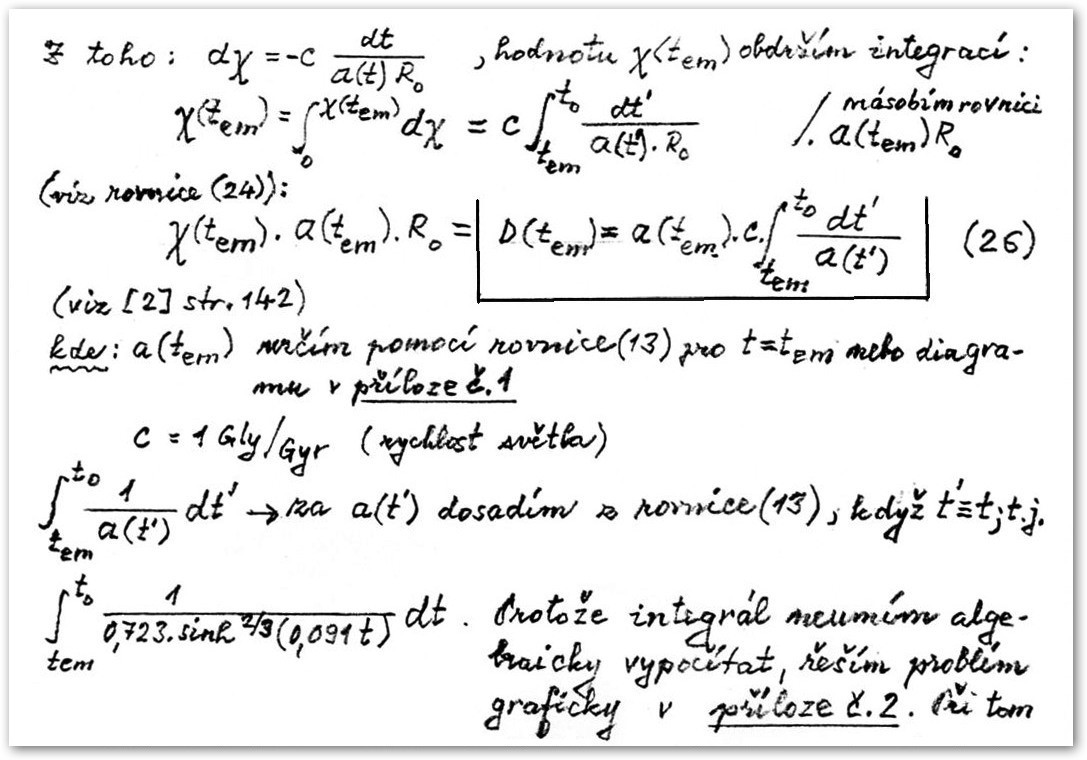 Z toho: dχ = -c dt / a(t) R₀ , hodnotu χ(t_em) obdržím integrací:
χ(t_em) = ∫₀^χ(t_em) dχ = c ∫_t_em^t₀ dt' / a(t') . R₀ /. násobím rovnici a(t_em) R₀
(viz rovnice (24)):
χ(t_em) . a(t_em) . R₀ = D(t_em) = a(t_em) . c . ∫_t_em^t₀ dt' / a(t') (26)
(viz [2] str. 142)
kde: a(t_em) určím pomocí rovnice (13) pro t = t_em nebo diagra-
mu v příloze č. 1
c = 1 Gly/Gyr (rychlost světla)
∫_t_em^t₀ 1 / a(t') dt' → za a(t') dosadím z rovnice (13), když t' ≡ t; t.j.
∫_tem^t₀ 1 / 0,723 . sinh^2/3 (0,091 t) dt . Protože integrál neumím alge-
braicky vypočítat, řeším problém
graficky v příloze č. 2. Při tom